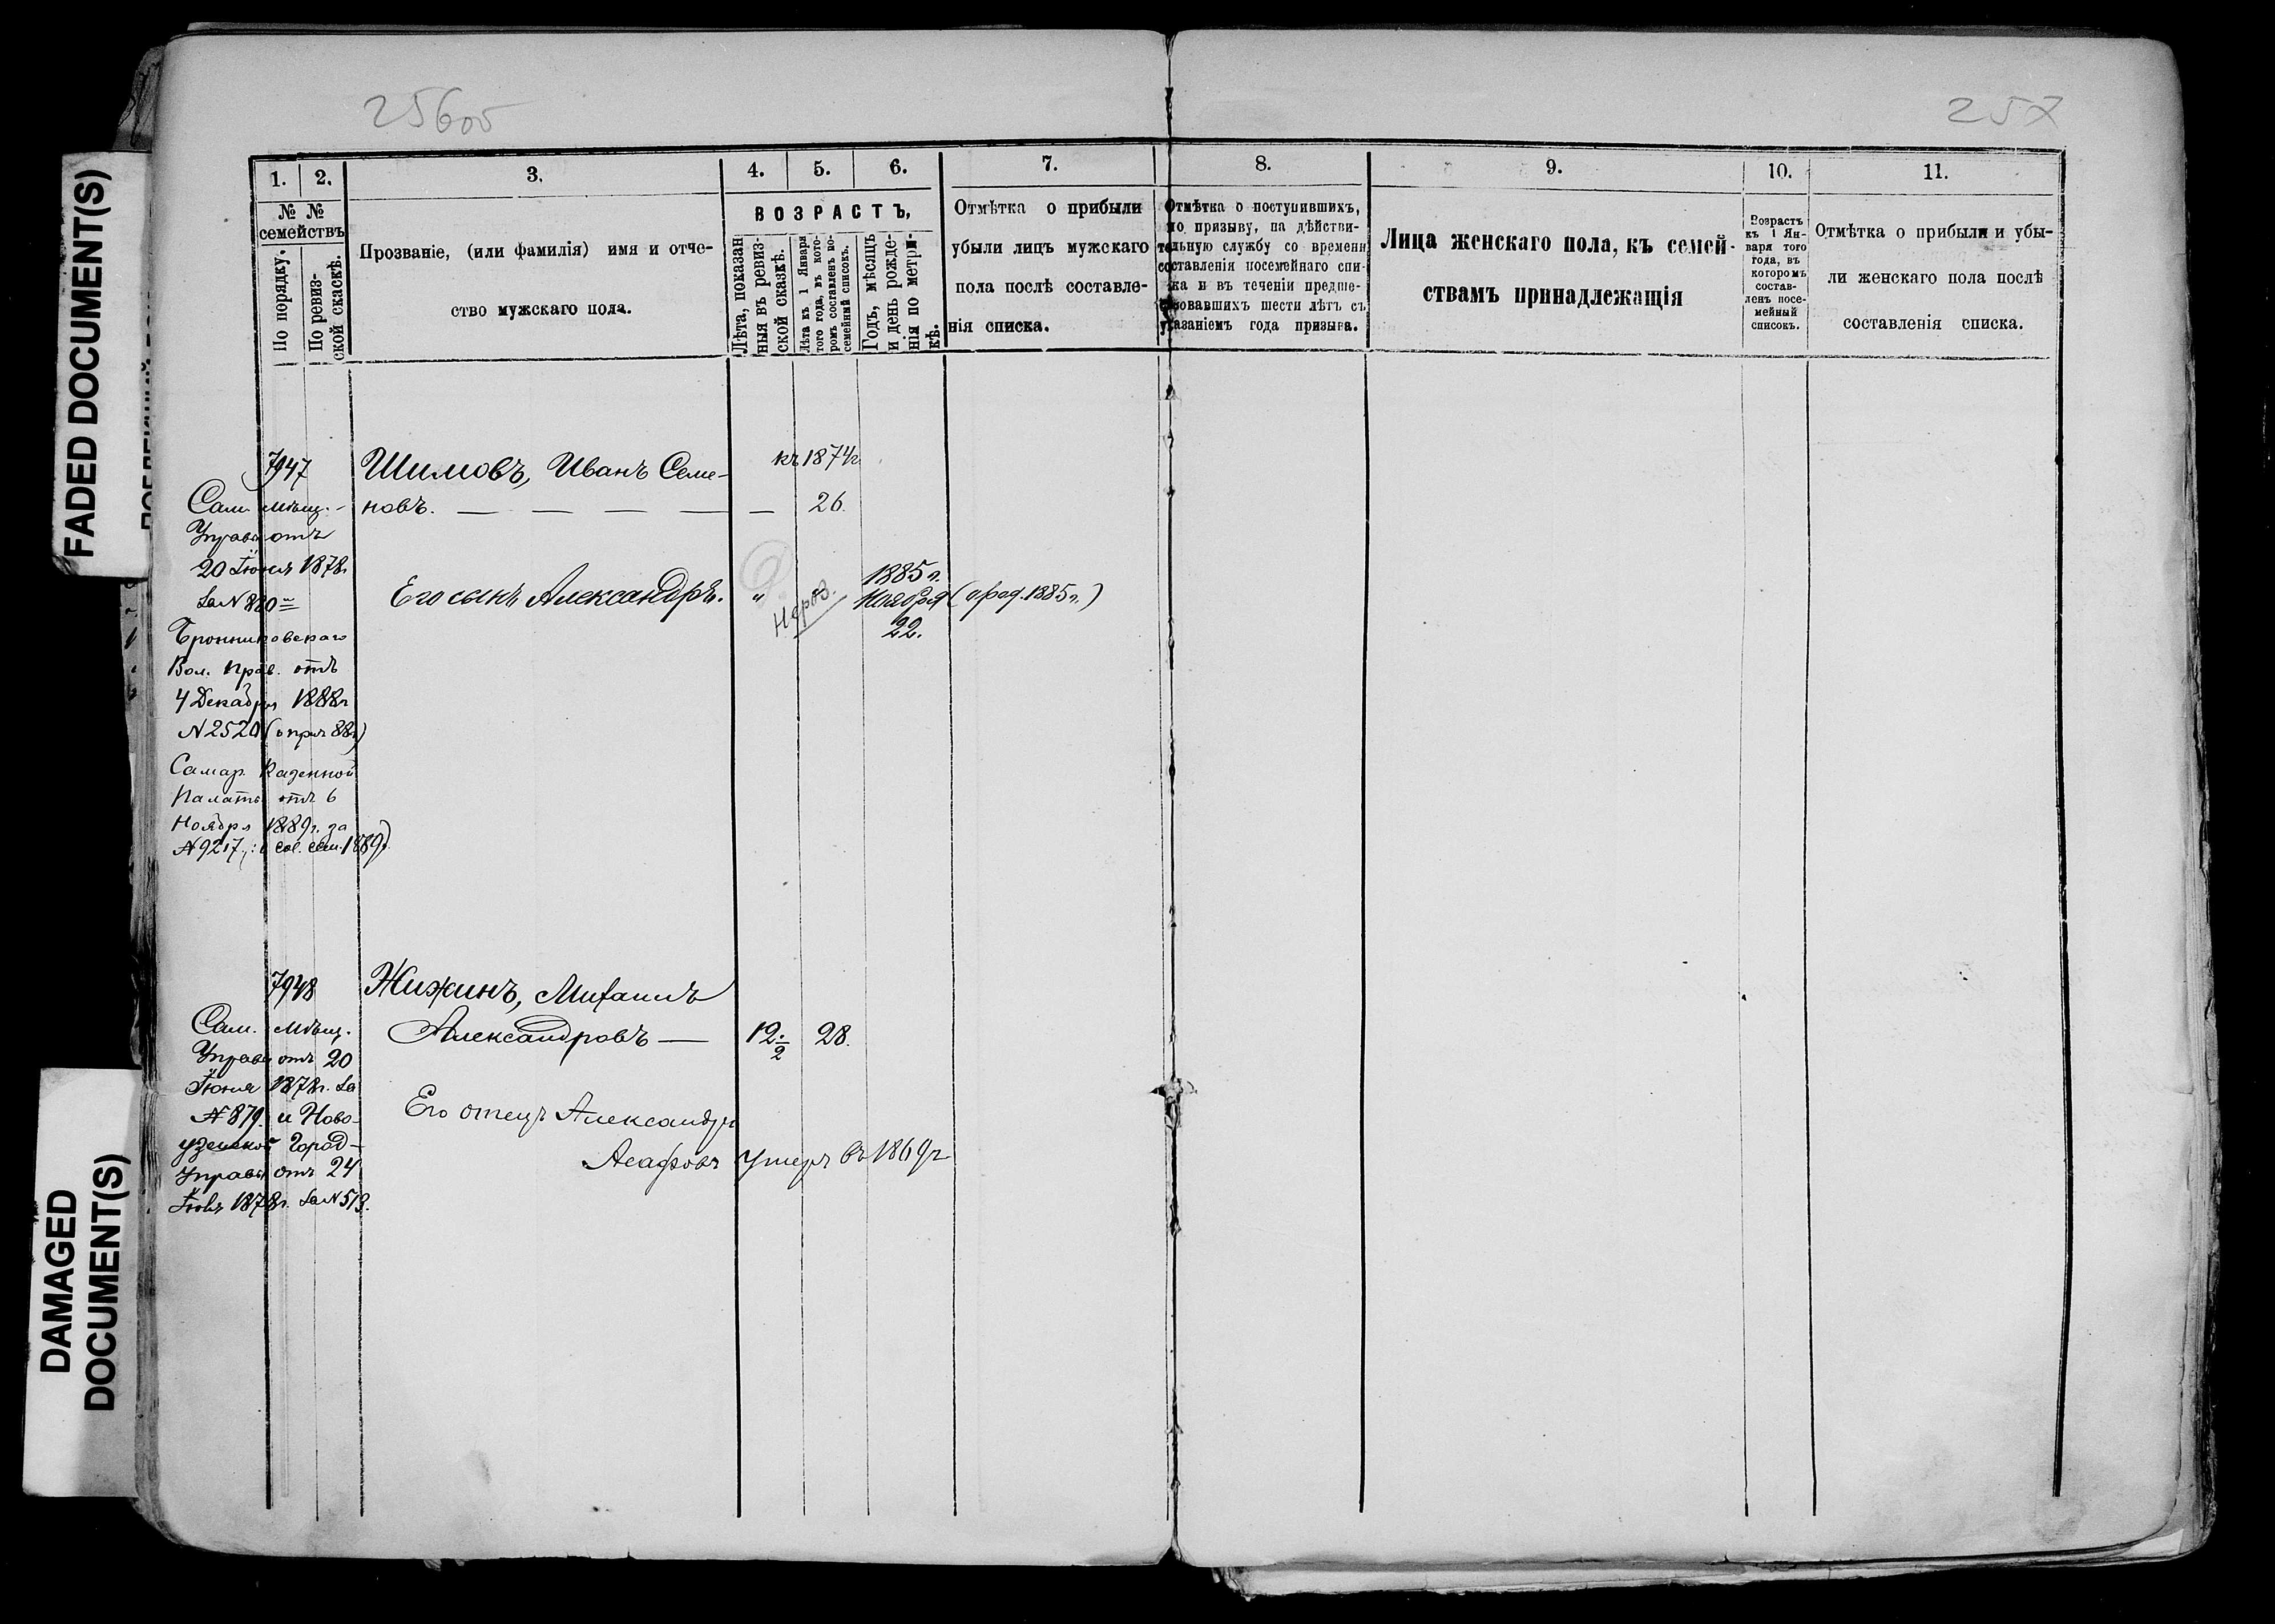 FADED DOCUMENT(S)
DAMAGED
DOCUMENT(S)
256об
257
1.
2.
3.
4.
5.
6.
7.
8.
9.
10.
11.
№ №
семействъ
По порядку.
По ревиз-
ской сказкѣ.
Прозваніе, (или фамилія) имя и отче-
ство мужскаго пола.
ВОЗРАСТЪ,
Лѣта, показан
ныя въ ревиз-
ской сказкѣ.
Лѣта къ 1 Января
того года, въ кото-
ромъ составленъ по-
семейный списокъ.
Годъ, мѣсяцъ
и день рожде-
нія по метри-
кѣ.
Отмѣтка о прибыли
убыли лицъ мужскаго
пола послѣ составле-
нія списка.
Отмѣтка о поступившихъ,
по призыву, на дѣйстви-
тельную службу со времени
составленія посемейнаго спи-
ска и въ теченіи предше-
ствовавшихъ шести лѣтъ съ
указаніемъ года призыва.
Лица женскаго пола, къ семей-
ствамъ принадлежащія
Возрастъ
къ 1 Ян-
варя того
года, въ
которомъ
состав-
ленъ посе-
мейный
списокъ.
Отмѣтка о прибыли и убы-
ли женскаго пола послѣ
составленія списка.
7947
Шимовъ, Иванъ Семе-
къ 1874г.
Сам. мѣщ.
новъ. — — — — —
26.
Управы отъ
20 Іюня 1878г
За № 880
Его сынъ Александръ.
"
1885 г.
Ноября
22.
(о род. 1885 г.)
Бронниковскаго
Вол. Прав. отъ
4 Декабря 1888г
№ 2520
Самар. Казенной
Палаты отъ 6
Ноября 1889г. за
№ 9217
7948
Жижинъ, Михаилъ
Сам. мѣщ.
Александровъ —
12 ½
28.
Управы отъ 20
Іюня 1878г. За
№ 879. и Ново-
узенской Город-
Управы отъ 24
1878г. За № 513.
Его отецъ Александръ
Асафовъ умеръ въ 1869г